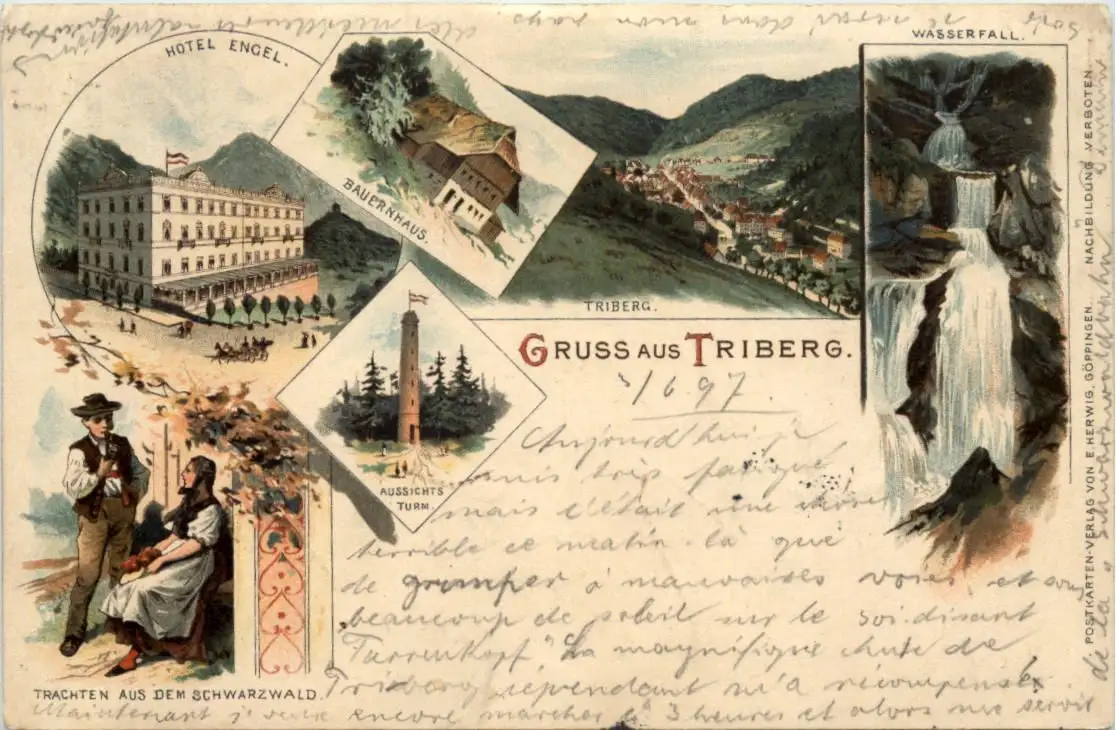 HOTEL ENGEL.
BAUERNHAUS.
TRIBERG.
WASSERFALL.
GRUSS AUS TRIBERG.
AUSSICHTS
TURM.
TRACHTEN AUS DEM SCHWARZWALD.
POSTKARTEN-VERLAG VON E. HERWIG, GÖPPINGEN. NACHBILDUNG VERBOTEN.
3/6 97.
Aujourd'hui je
suis très fatigué
mais c'était une
terrible ce matin-là que
de grimper à mauvaises voies et
beaucoup de soleil sur le soi-disant
Farrenkopf". La magnifique chute de
Triberg cependant m'a récompensé.
Maintenant je veux encore marcher 3 heures et alors me servir
de la Schwarzwaldbahn
dans mon pays